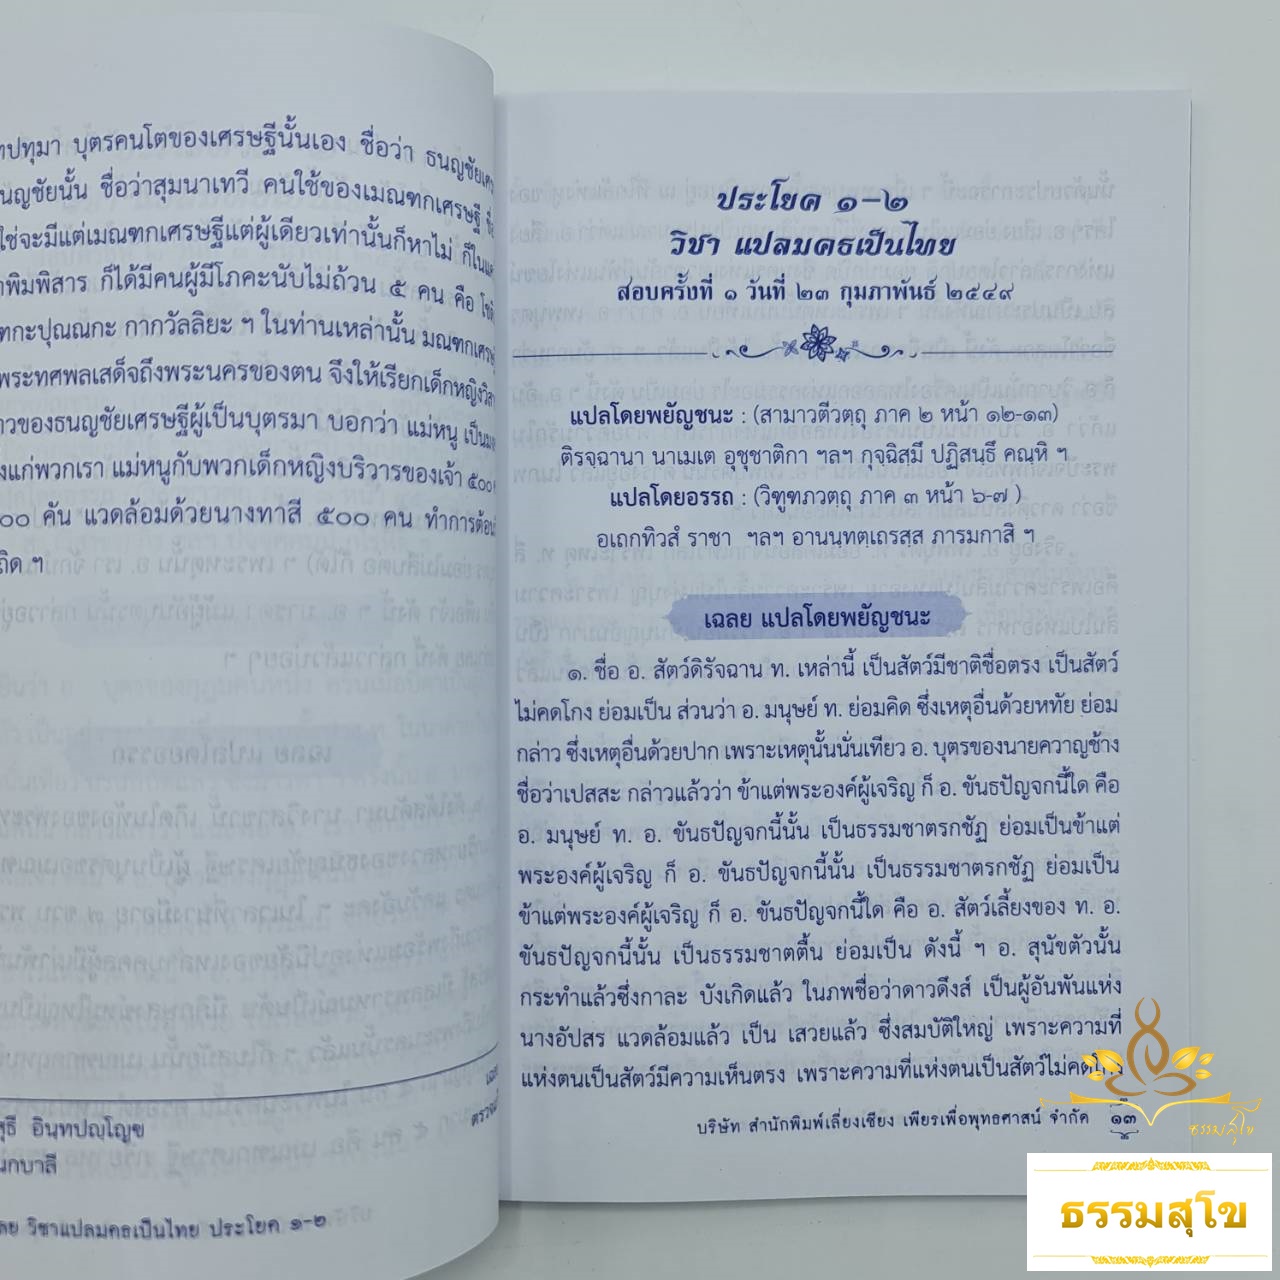 ทปทุมา บุตรคนโตของเศรษฐีนั้นเอง ชื่อว่า ธนญชัยเศร
นัญชัยนั้น ชื่อว่าสุมนาเทวี คนใช้ของเมณฑกเศรษฐี ชื่อ
ใช่จะมีแต่เมณฑกเศรษฐีแต่ผู้เดียวเท่านั้นก็หาไม่ ก็ในแค
าพิมพิสาร ก็ได้มีคนผู้มีโภคะนับไม่ถ้วน ๕ คน คือ โชติ
ฑกะปุณณกะ กากวัลลิยะ ฯ ในท่านเหล่านั้น มณฑกเศรษ
พระทศพลเสด็จถึงพระนครของตน จึงให้เรียกเด็กหญิงวิสา
าวของธนญชัยเศรษฐีผู้เป็นบุตรมา บอกว่า แม่หนู เป็นมง
งแก่พวกเรา แม่หนูกับพวกเด็กหญิงบริวารของเจ้า ๕๐๐
๐๐ คัน แวดล้อมด้วยนางทาสี ๕๐๐ คน ทำการต้อน
ถิด ฯ
สุธี อินฺทปญฺโญข
นกบาลี
ตรวจ
ลย วิชาแปลมคธเป็นไทย ประโยค ๑-๒
ประโยค ๑-๒
วิชา แปลมคธเป็นไทย
สอบครั้งที่ ๑ วันที่ ๒๓ กุมภาพันธ์ ๒๕๔๙
แปลโดยพยัญชนะ : (สามาวตีวตฺถุ ภาค ๒ หน้า ๑๒-๑๓)
ติรจฺฉานา นาเมเต อุชุชาติกา ฯลฯ กุจฺฉิสฺมึ ปฏิสนฺธึ คณฺหิ ฯ
แปลโดยอรรถ : (วิฑูฑภวตฺถุ ภาค ๓ หน้า ๖-๗ )
อเถกทิวสํ ราชา ฯลฯ อานนฺทตฺเถรสฺส ภารมกาสิ ฯ
เฉลย แปลโดยพยัญชนะ
๑. ชื่อ อ. สัตว์ดิรัจฉาน ท. เหล่านี้ เป็นสัตว์มีชาติชื่อตรง เป็นสัตว์
ไม่คดโกง ย่อมเป็น ส่วนว่า อ. มนุษย์ ท. ย่อมคิด ซึ่งเหตุอื่นด้วยหทัย ย่อม
กล่าว ซึ่งเหตุอื่นด้วยปาก เพราะเหตุนั้นนั่นเทียว อ. บุตรของนายควาญช้าง
ชื่อว่าเปสสะ กล่าวแล้วว่า ข้าแต่พระองค์ผู้เจริญ ก็ อ. ขันธปัญจกนี้ใด คือ
อ. มนุษย์ ท. อ. ขันธปัญจกนี้นั้น เป็นธรรมชาตรกชัฏ ย่อมเป็นข้าแต่
พระองค์ผู้เจริญ ก็ อ. ขันธปัญจกนี้นั้น เป็นธรรมชาตรกชัฏ ย่อมเป็น
ข้าแต่พระองค์ผู้เจริญ ก็ อ. ขันธปัญจกนี้ใด คือ อ. สัตว์เลี้ยงของ ท. อ.
ขันธปัญจกนี้นั้น เป็นธรรมชาตตื้น ย่อมเป็น ดังนี้ ฯ อ. สุนัขตัวนั้น
กระทำแล้วซึ่งกาละ บังเกิดแล้ว ในภพชื่อว่าดาวดึงส์ เป็นผู้อันพันแห่ง
นางอัปสร แวดล้อมแล้ว เป็น เสวยแล้ว ซึ่งสมบัติใหญ่ เพราะความที่
แห่งตนเป็นสัตว์มีความเห็นตรง เพราะความที่แห่งตนเป็นสัตว์ไม่คดโกง
บริษัท สำนักพิมพ์เลี่ยงเชียง เพียรเพื่อพุทธศาสน์ จำกัด ๑๓
ธรรมสุโข
ธรรมสุโข